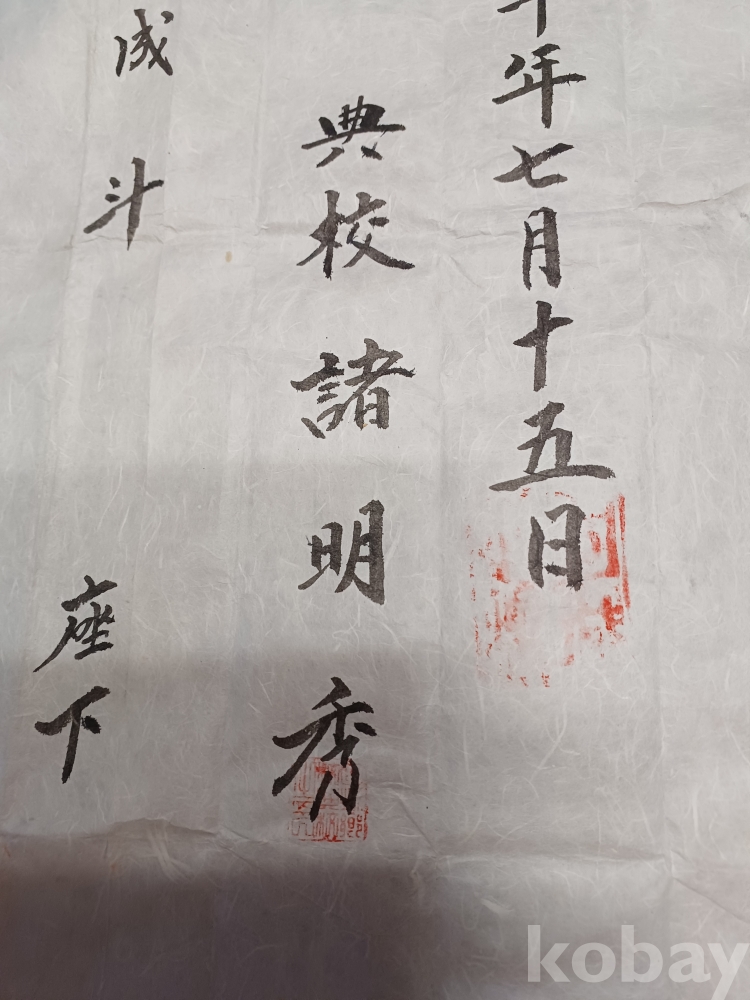 年七月十五日
典校 諸明秀
成斗 座下
kobay